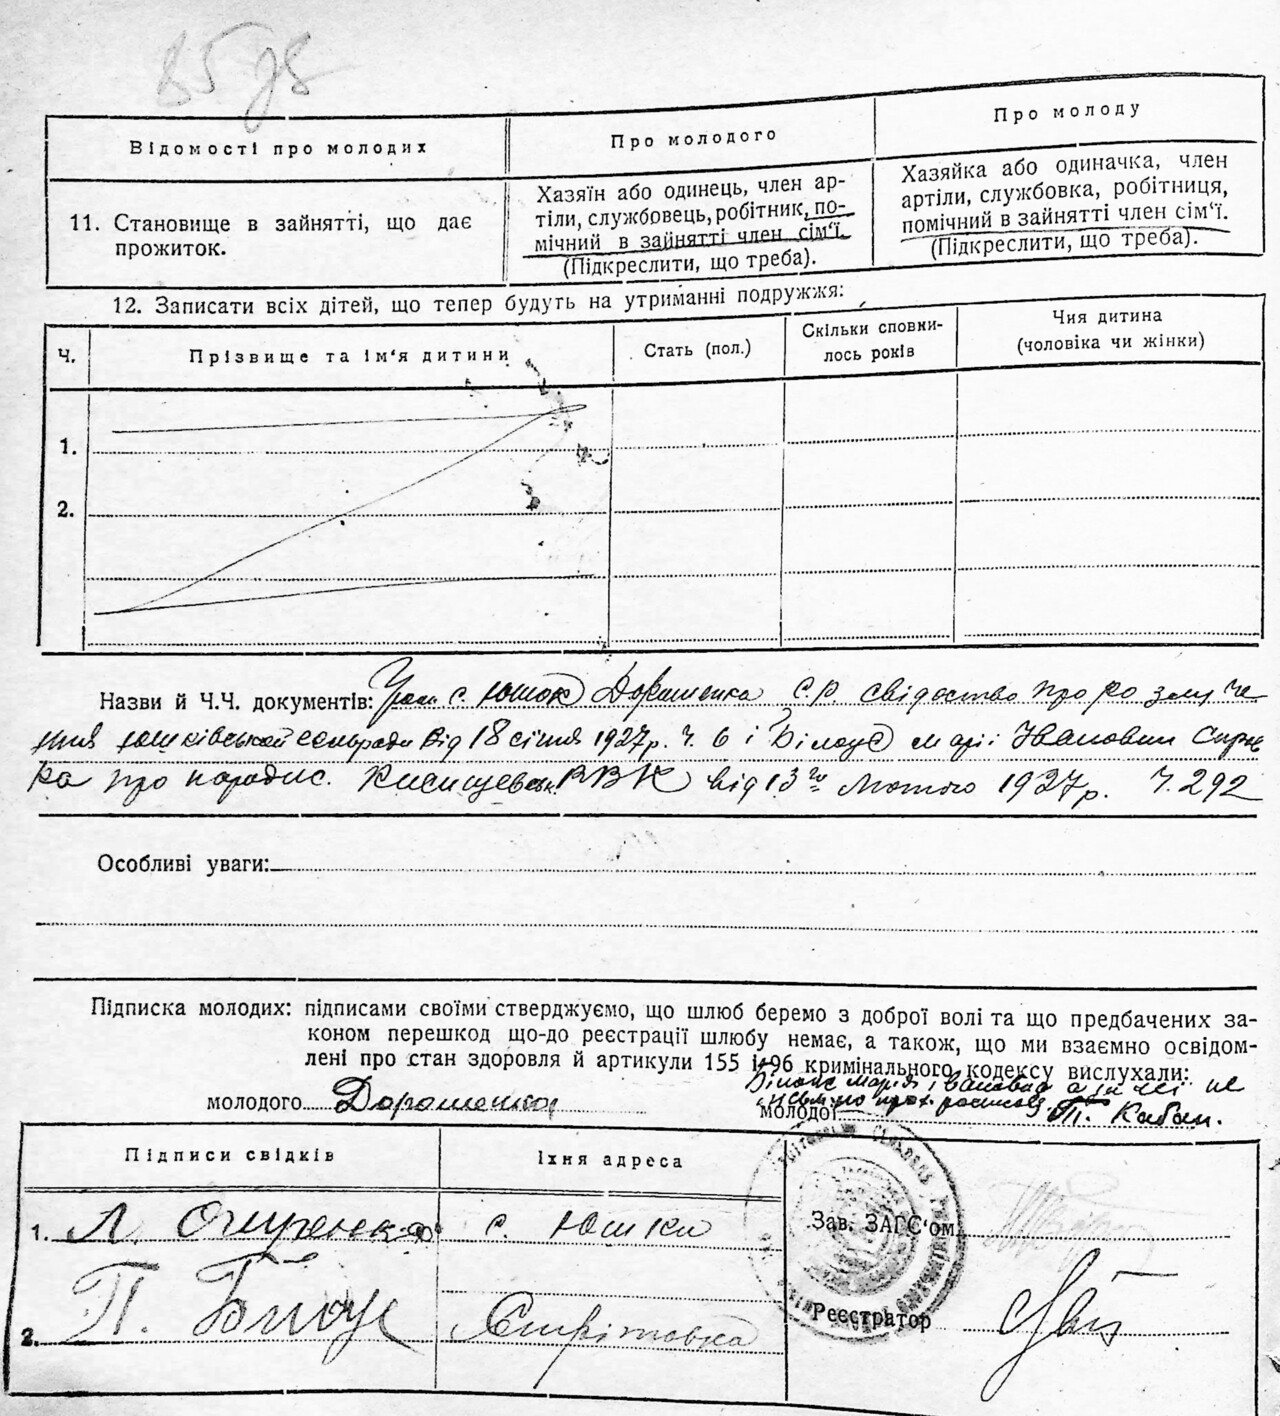 Відомості про молодих
Про молодого
Про молоду
11. Становище в зайнятті, що дає
прожиток.
Хазяїн або одинець, член ар-
тіли, службовець, робітник, по-
мічний в зайнятті член сім'ї.
(Підкреслити, що треба).
Хазяйка або одиначка, член
артіли, службовка, робітниця,
помічний в зайнятті член сім'ї.
(Підкреслити, що треба).
12. Записати всіх дітей, що тепер будуть на утриманні подружжя:
Ч.
Прізвище та ім'я дитини
Стать (пол.)
Скільки сповни-
лось років
Чия дитина
(чоловіка чи жінки)
1.
2.
Назви й Ч.Ч. документів: с. Юшок Дорошенка С.Р. свідоство про розлуче
ння юшківської сельради від 18 січня 1927 р. ч. 6 і Білоус марії Івановни Справ
ка про народис. РВК від 13го Лютого 1927 р. Ч. 292
Особливі уваги:
Підписка молодих: підписами своїми стверджуємо, що шлюб беремо з доброї волі та що предбачених за-
коном перешкод що-до реєстрації шлюбу немає, а також, що ми взаємно освідом-
лені про стан здоровля й артикули 155 і 196 кримінального кодексу вислухали:
молодого Дорошенко
Білоус Марія Івановна а за неї не
молодої письмено прох. росписавсь П. Кабан.
Підписи свідків
Їхня адреса
1. Л. Очеренко
с. Юшки
Зав. ЗАГС'ом
2. П. Білоус
Стрітовка
Реєстратор